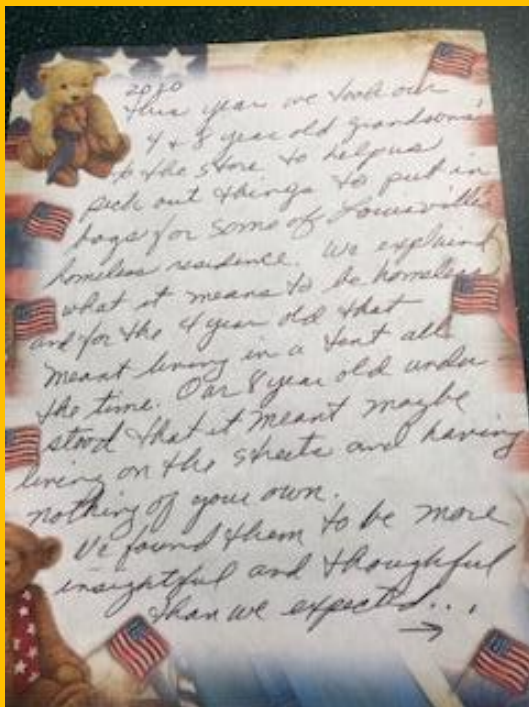 2020
This year we took our
4 & 8 year old grandsons
to the store to help us
pick out things to put in
bags for some of Louisville
homeless residence. We explaind
what it means to be homeless
and for the 4 year old that
meant living in a tent all
the time. Our 8 year old under-
stood that it meant maybe
living on the streets and having
nothing of your own.
We found them to be more
insightful and thoughful
than we expected...
→